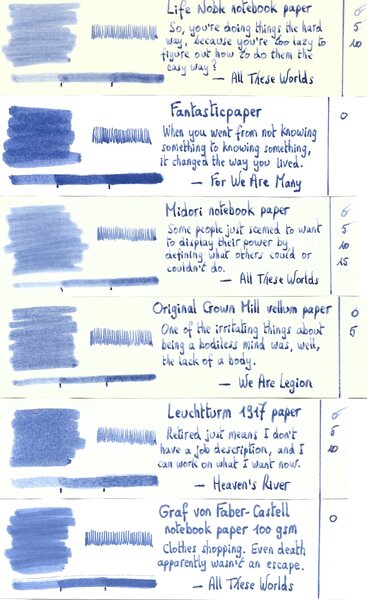 Life Noble notebook paper
So, you're doing things the hard
way, because you're too lazy to
figure out how to do them the
easy way?
— All These Worlds
0
5
10
Fantasticpaper
When you went from not knowing
something to knowing something,
it changed the way you lived.
— For We Are Many
0
Midori notebook paper
Some people just seemed to want
to display their power by
defining what others could or
couldn't do.
— All These Worlds
0
5
10
15
Original Crown Mill vellum paper
One of the irritating things about
being a bodiless mind was, well,
the lack of a body.
— We Are Legion
0
5
Leuchtturm 1917 paper
Retired just means I don't
have a job description, and I
can work on what I want now.
— Heaven's River
0
5
10
Graf von Faber-Castell
notebook paper 100 gsm
Clothes shopping. Even death
apparently wasn't an escape.
— All These Worlds
0